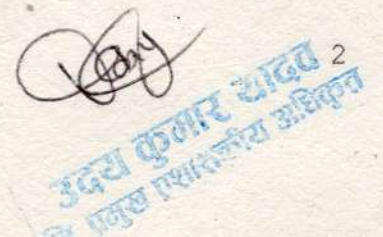 2
उदय कुमार यादव
नि. प्रमुख प्रशासकीय अधिकृत